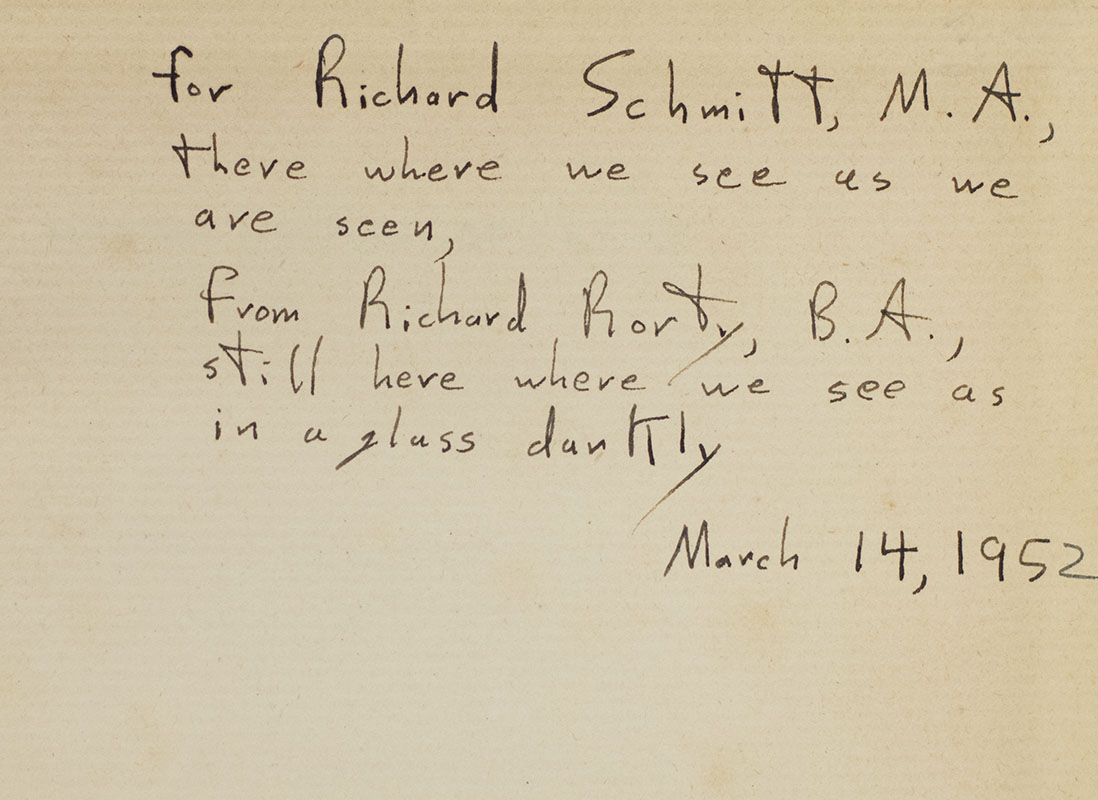 for Richard Schmitt, M.A.,
there where we see as we
are seen,
from Richard Rorty, B.A.,
still here where we see as
in a glass darkly
March 14, 1952